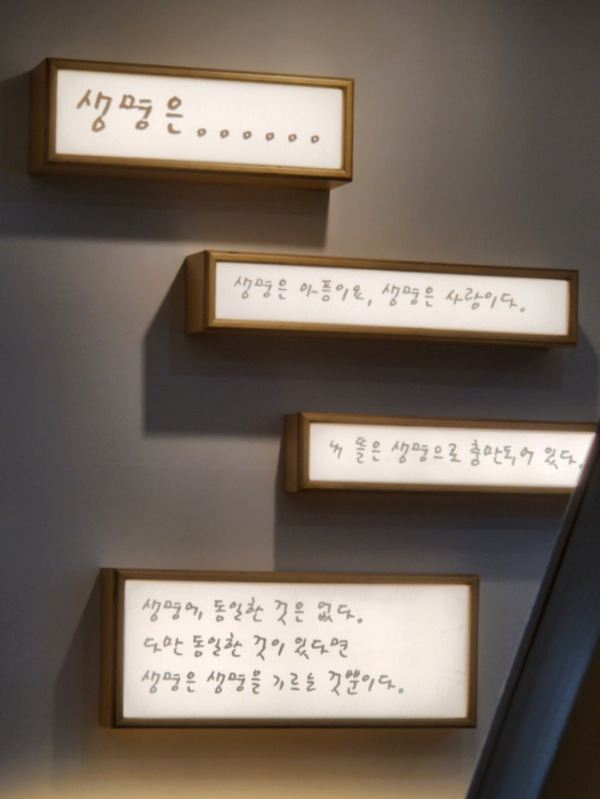 생명은。。。。。。
생명은 아픔이요, 생명은 사랑이다.
내 뜰은 생명으로 충만되어 있다.
생명에, 동일한 것은 없다.
다만 동일한 것이 있다면
생명은 생명을 기르는 것뿐이다.